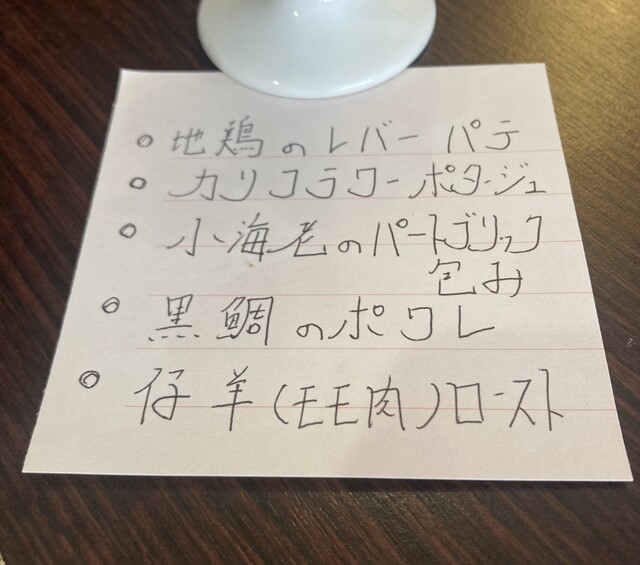 ○ 地鶏のレバーパテ
○ カリフラワーポタージュ
○ 小海老のパートブリック
包み
○ 黒鯛のポワレ
○ 仔羊(モモ肉)ロースト